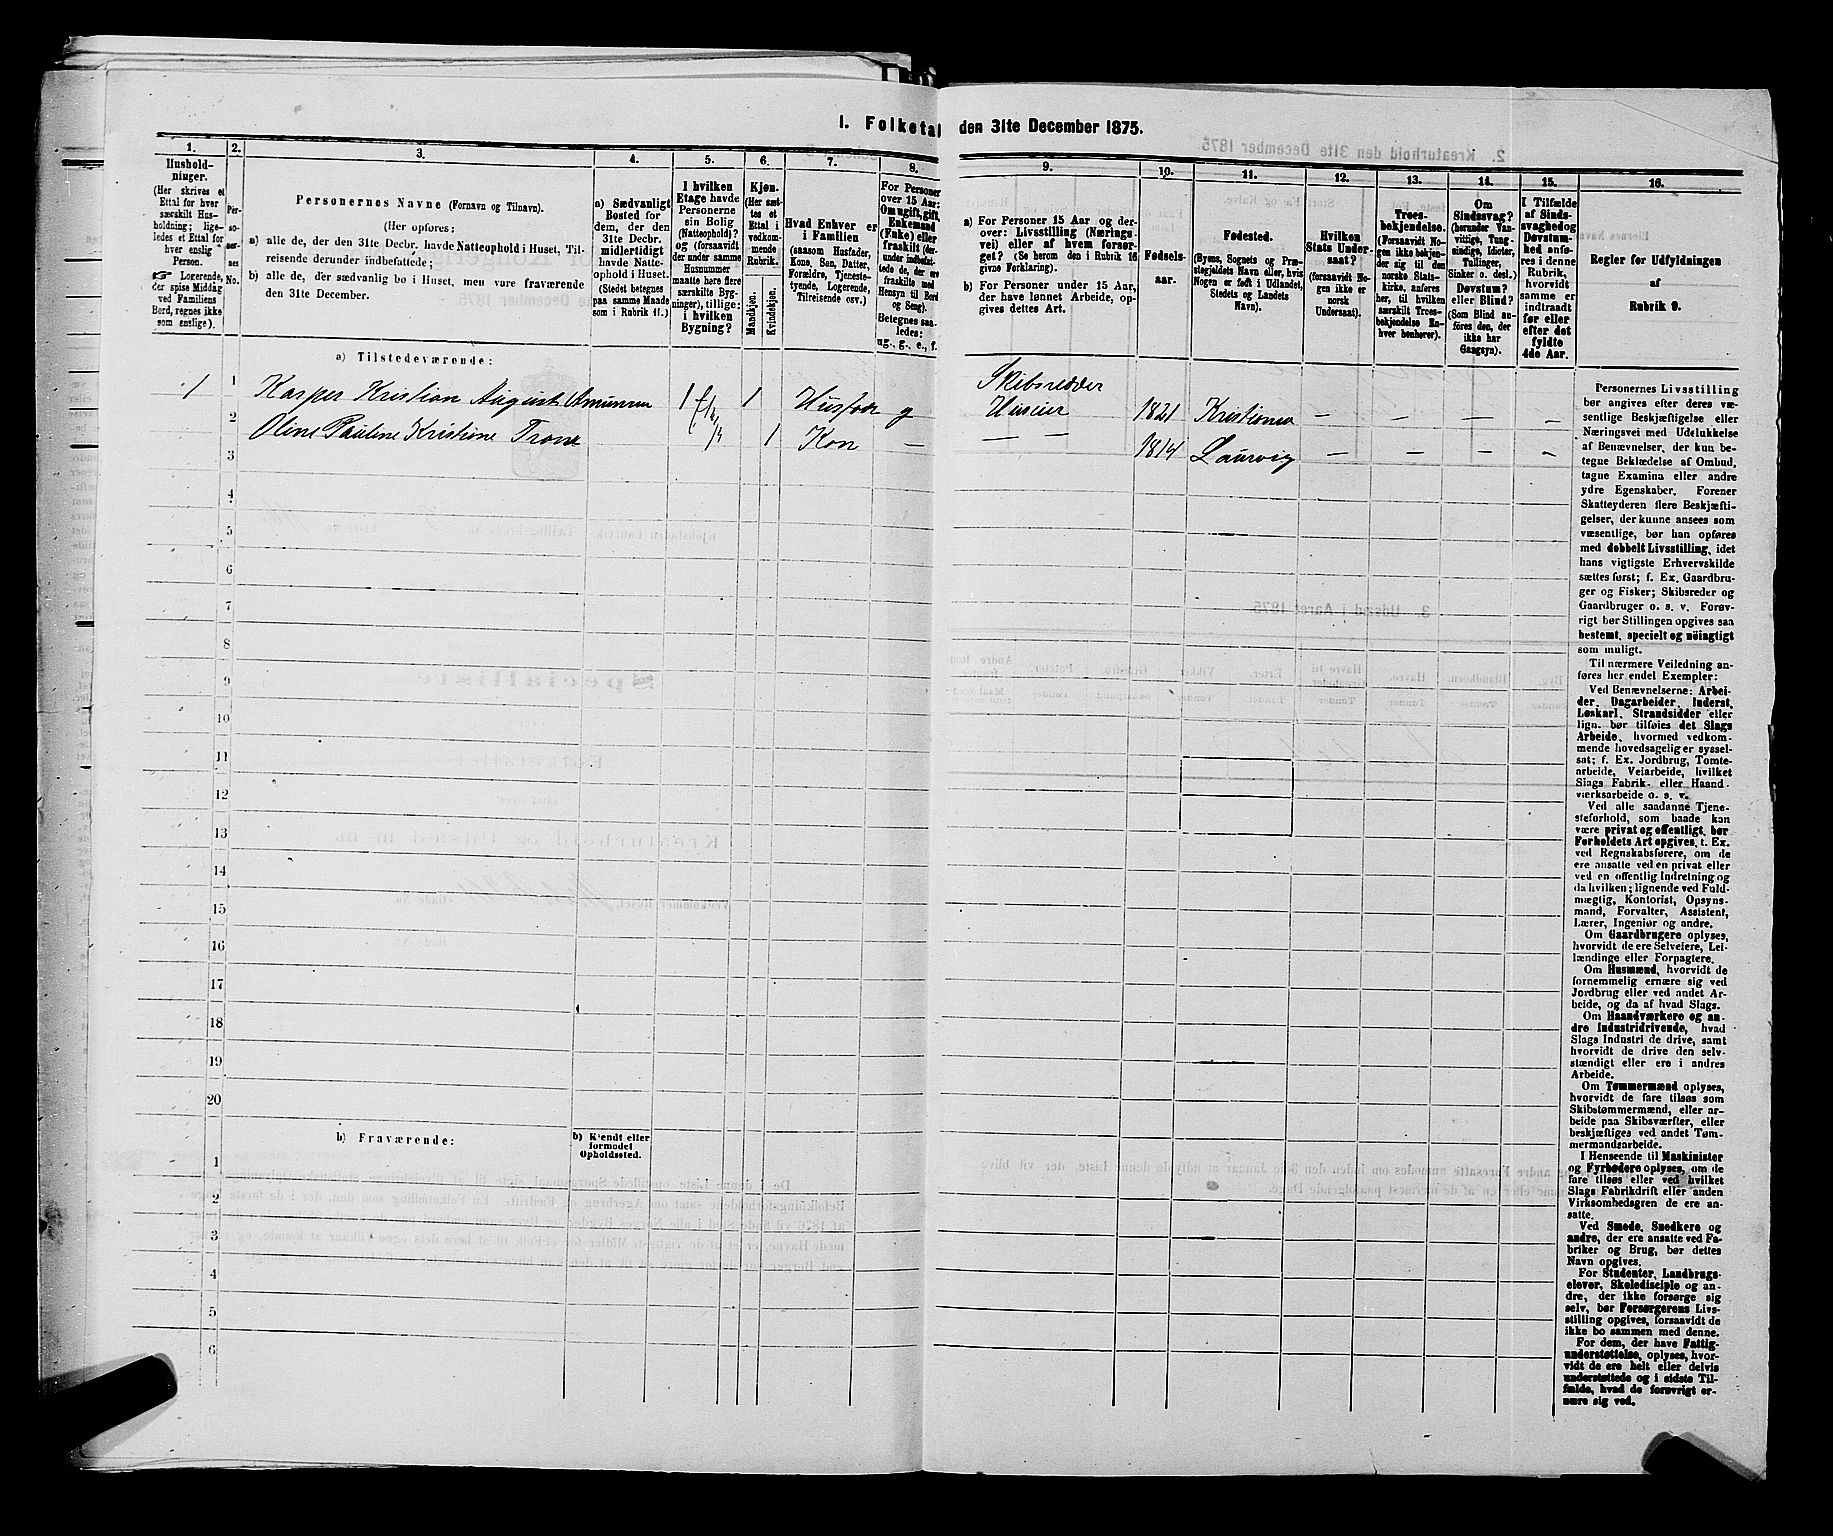 1. Folketal den 31te December 1875.
1.
Hushold-
ninger.
(Her skrives et
Ettal for hver
særskilt Hus-
holdning; lige-
ledes et Ettal for
hver enslig
Person.
☞ Logerende,
der spise Middag
ved Familiens
Bord, regnes ikke
som enslige).
2.
Per-
so-
ner-
nes
No.
3.
Personernes Navne (Fornavn og Tilnavn).
(Her opføres:
a) alle de, der den 31te Decbr. havde Natteophold i Huset, Til-
reisende derunder indbefattede;
b) alle de, der sædvanlig bo i Huset, men vare fraværende
den 31te December.
4.
a) Sædvanligt
Bosted for
dem, der den
31te Decbr.
midlertidigt
havde Natte-
ophold i Huset.
(Stedet betegnes
paa samme Maade
som i Rubrik 11.)
5.
I hvilken
Etage havde
Personerne
sin Bolig
(Natteophold)?
og (forsaavidt
der under samme
Husnummer
maatte høre flere
særskilte Byg-
ninger), tillige:
i hvilken
Bygning?
6.
Kjøn.
(Her sæt-
tes et
Ettal i
vedkom-
mende
Rubrik.
Mandkjøn.
Kvindekjøn.
7.
Hvad Enhver er
i Familien
(saasom Husfader,
Kone, Søn, Datter,
Forældre, Tjeneste-
tyende, Logerende,
Tilreisende osv.)
8.
For Personer
over 15 Aar:
Om ugift, gift,
Enkemand
(Enke) eller
fraskilt (der-
under indbefat-
tede de, der ere
fraskilte med
Hensyn til Bord
og Seng).
Betegnes saa-
ledes:
ug., g., e., f.
9.
a) For Personer 15 Aar og der-
over: Livsstilling (Nærings-
vei) eller af hvem forsør-
get? (Se herom den i Rubrik 16
givne Forklaring).
b) For Personer under 15 Aar,
der have lønnet Arbeide, op-
gives dettes Art.
10.
Fødsels-
aar.
11.
Fødested.
(Byens, Sognets og Præ-
stegjeldets Navn eller, hvis
Nogen er født i Udlandet,
Stedets og Landets
Navn).
12.
Hvilken
Stats Under-
saat?
(forsaavidt No-
gen ikke er
norsk
Undersaat).
13.
Troes-
bekjendelse.
(Forsaavidt No-
gen ikke bekjen-
der sig til den
norske Stats-
kirke, anføres
her, til hvilken
særskilt Troes-
bekjendelse En-
hver henhører).
14.
Om
Sindssvag?
(herunder Van-
vittige, Tung-
sindige, Idioter,
Tullinger,
Sinker o. desl.)
Døvstum?
eller Blind?
(Som Blind an-
føres den, der
ikke har
Gangsyn).
15.
I Tilfælde
af Sinds-
svaghed og
Døvstum-
hed anfø-
res i denne
Rubrik,
hvorvidt
samme er
indtraadt
før eller
efter det
fyldte
4de Aar.
16.
Regler for Udfyldningen
af
Rubrik 9.
a) Tilstedeværende:
1 1 Kasper Kristian August Amunsen 1 1 Husfader g Skibsredder
Huseier 1821 Kristiania — — — —
2 Oline Pauline Kristine Trone 1 Kon — — — 1814 Laurvig — — — —
3
4
5
6
7
8
9
10
11
12
13
14
15
16
17
18
19
20
b) Fraværende:
b) Kjendt eller
formodet
Opholdssted.
1
2
3
4
5
6
Personernes Livsstilling
bør angives efter deres væ-
sentlige Beskjæftigelse eller
Næringsvei med Udelukkelse
af Benævnelser, der kun be-
tegne Beklædelse af Ombud,
tagne Examina eller andre
ydre Egenskaber. Forener
Skatteyderen flere Beskjæfti-
gelser, der kunne ansees som
væsentlige, bør han opføres
med dobbelt Livsstilling, idet
hans vigtigste Erhvervskilde
sættes først; f. Ex. Gaardbru-
ger og Fisker; Skibsreder og
Gaardbruger o. s. v. Forøv-
rigt bør Stillingen opgives saa
bestemt, specielt og nöiagtigt
som muligt.
Til nærmere Veiledning an-
føres her endel Exempler:
Ved Benævnelserne: Arbei-
der, Dagarbeider, Inderst,
Løskarl, Strandsidder eller
lign. bør tilføies det Slags
Arbeide, hvormed vedkom-
mende hovedsagelig er syssel-
sat; f. Ex. Jordbrug, Tomte-
arbeide, Veiarbeide, hvilket
Slags Fabrik- eller Haand-
værksarbeide o. s. v.
Ved alle saadanne Tjene-
steforhold, som baade kan
være privat og offentligt, bør
Forholdets Art opgives, f. Ex.
ved Regnskabsførere, om de
ere ansatte ved en privat eller
ved en offentlig Indretning og
da hvilken; lignende ved Fuld-
mægtig, Kontorist, Opsyns-
mand, Forvalter, Assistent,
Lærer, Ingeniør og andre.
Om Gaardbrugere oplyses,
hvorvidt de ere Selveiere, Lei-
lændinge eller Forpagtere.
Om Husmænd, hvorvidt de
fornemmelig ernære sig ved
Jordbrug eller ved andet Ar-
beide, og da af hvad Slags.
Om Haandværkere og an-
dre Industridrivende, hvad
Slags Industri de drive, samt
hvorvidt de drive den selv-
stændigt eller ere i andres
Arbeide.
Om Tømmermænd oplyses,
hvorvidt de fare tilsøs som
Skibstømmermænd, eller ar-
beide paa Skibsværfter, eller
beskjæftiges ved andet Tøm-
mermandsarbeide.
I Henseende til Maskinister
og Fyrbødere oplyses, om de
fare tilsøs eller ved hvilket
Slags Fabrikdrift eller anden
Virksomhedsgren de ere an-
satte.
Ved Smede, Snedkere og
andre, der ere ansatte ved Fa-
briker og Brug, bør dettes
Navn opgives.
For Studenter, Landbrugs-
elever, Skoledisciple og an-
dre, der ikke forsørge sig
selv, bør Forsørgerens Livs-
stilling opgives, forsaavidt de
ikke bo sammen med denne.
For dem, der have Fattig-
understøttelse, oplyses, hvor-
vidt de ere helt eller delvis
understøttede og i sidste Til-
fælde, hvad de forøvrigt er-
nære sig ved.